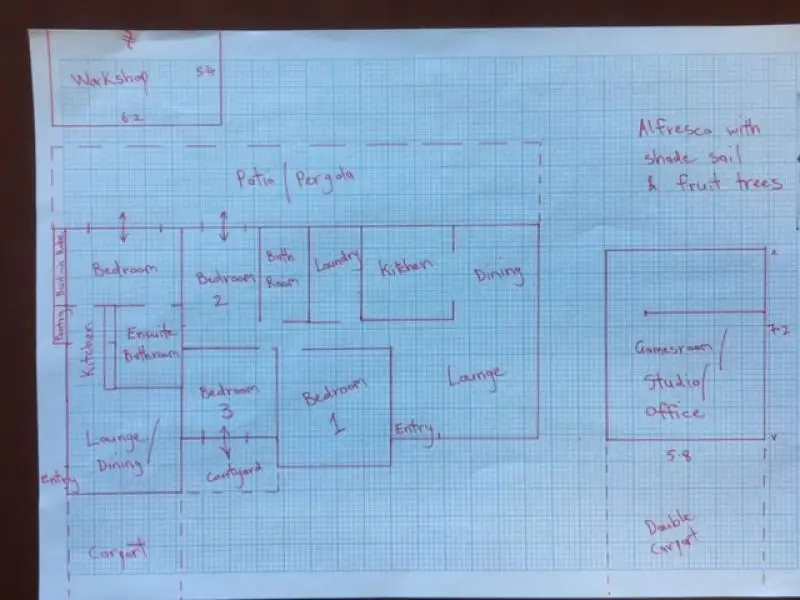 Workshop
5.4
6.2
Alfresca with
shade sail
& fruit trees
Patio / Pergola
Built-in Robe
Bedroom
Bedroom
2
Bath
Room
Laundry
Kitchen
Dining
Pantry
Kitchen
Ensuite
Bathroom
Bedroom
3
Bedroom
1
Lounge
Entry
Gamesroom /
Studio /
Office
7.2
5.8
Lounge /
Dining
Courtyard
Entry
Carport
Double
Carport